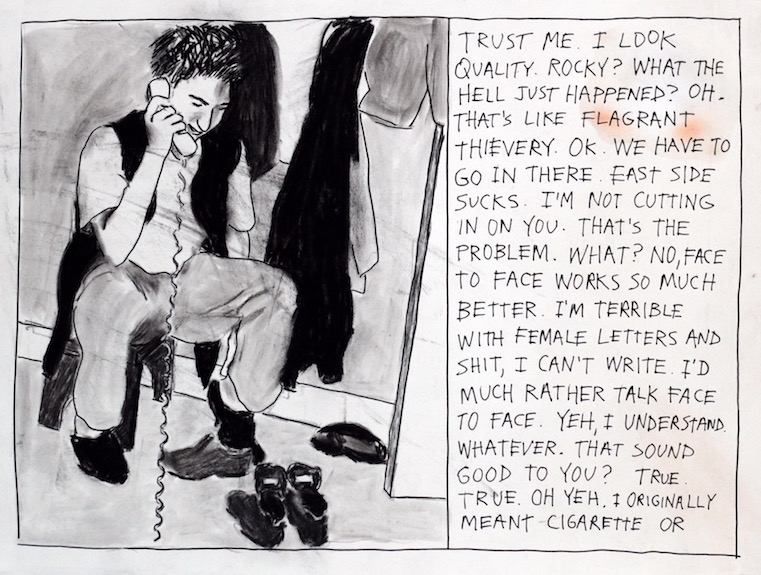 TRUST ME. I LOOK
QUALITY. ROCKY? WHAT THE
HELL JUST HAPPENED? OH.
THAT'S LIKE FLAGRANT
THIEVERY. OK. WE HAVE TO
GO IN THERE. EAST SIDE
SUCKS. I'M NOT CUTTING
IN ON YOU. THAT'S THE
PROBLEM. WHAT? NO, FACE
TO FACE WORKS SO MUCH
BETTER. I'M TERRIBLE
WITH FEMALE LETTERS AND
SHIT, I CAN'T WRITE. I'D
MUCH RATHER TALK FACE
TO FACE. YEH, I UNDERSTAND.
WHATEVER. THAT SOUND
GOOD TO YOU? TRUE.
TRUE. OH YEH. I ORIGINALLY
MEANT CIGARETTE OR